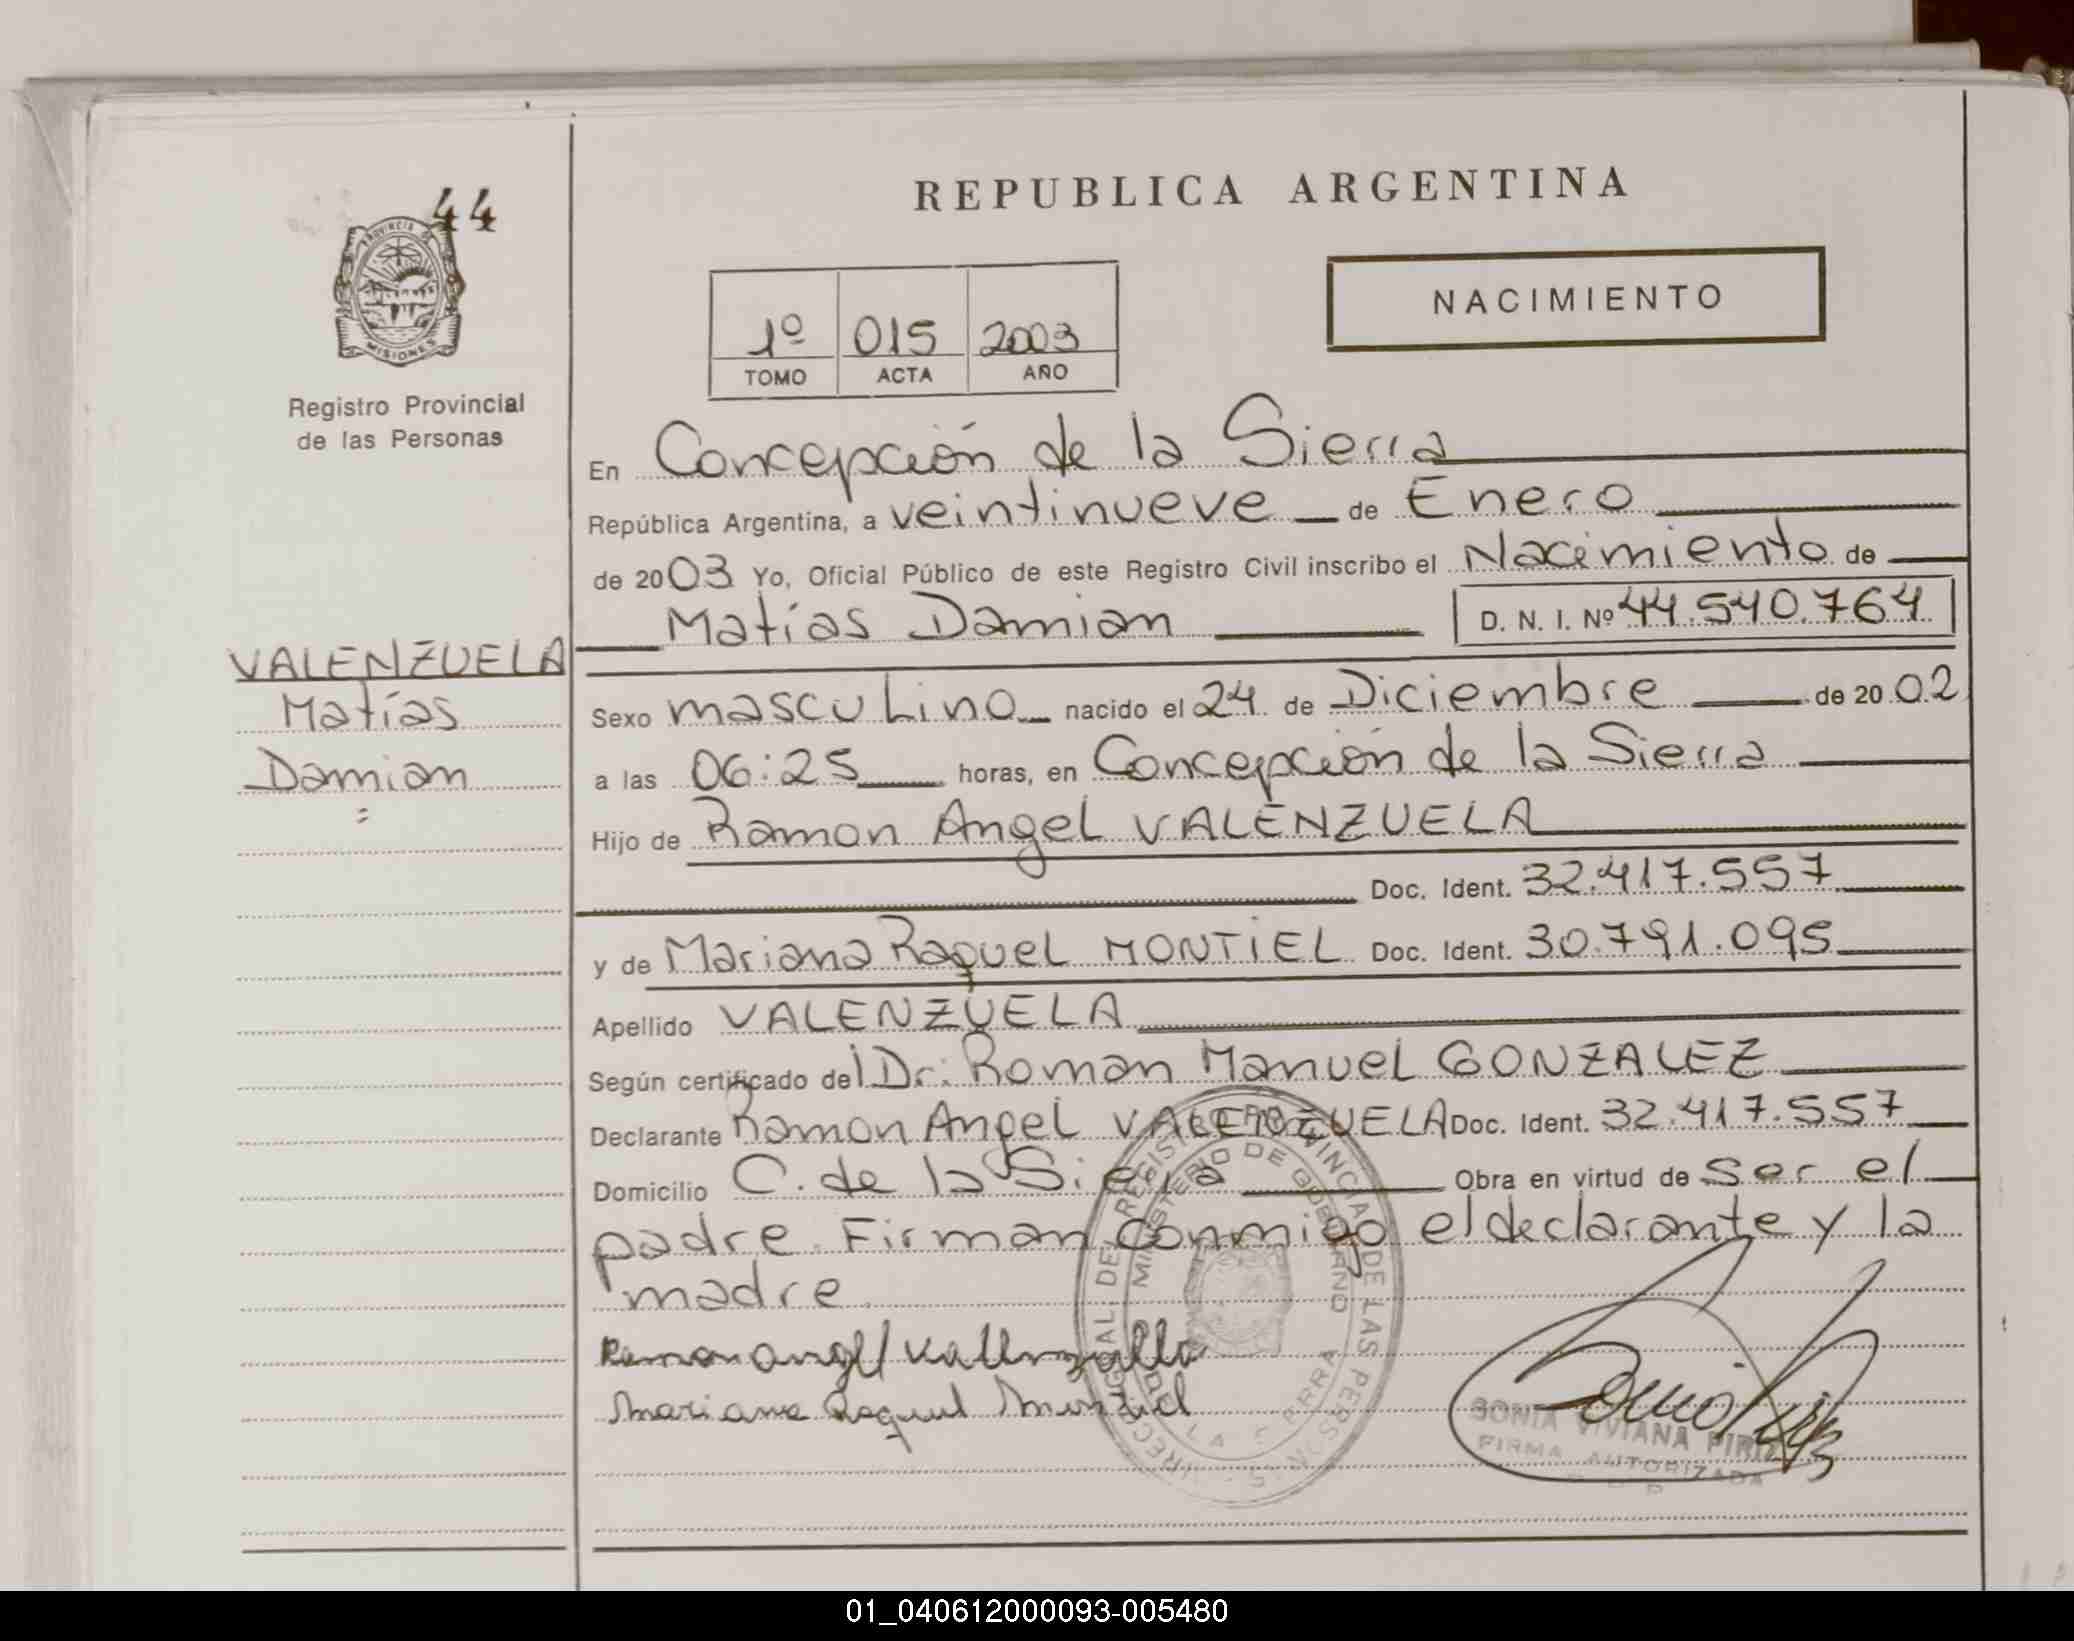 44
PROVINCIA DE
MISIONES
Registro Provincial
de las Personas
REPUBLICA ARGENTINA
NACIMIENTO
1º 015 2003
TOMO ACTA AÑO
En Concepción de la Sierra
República Argentina, a veintinueve de Enero
de 2003 Yo, Oficial Público de este Registro Civil inscribo el Nacimiento de
Matías Damian D. N. I. Nº 44.540.764
VALENZUELA
Matías
Damian
Sexo masculino nacido el 24 de Diciembre de 2002
a las 06:25 horas, en Concepción de la Sierra
Hijo de Ramon Angel VALENZUELA
Doc. Ident. 32.417.557
y de Mariana Raquel MONTIEL Doc. Ident. 30.791.095
Apellido VALENZUELA
Según certificado del Dr. Roman Manuel GONZALEZ
Declarante Ramon Angel VALENZUELA Doc. Ident. 32.417.557
Domicilio C. de la Sierra Obra en virtud de ser el
padre. Firman conmigo el declarante y la
madre.
Ramon angel
Mariana Raquel
MINISTERIO DE GOBIERNO
SONIA VIVIANA
FIRMA AUTORIZADA
01_040612000093-005480